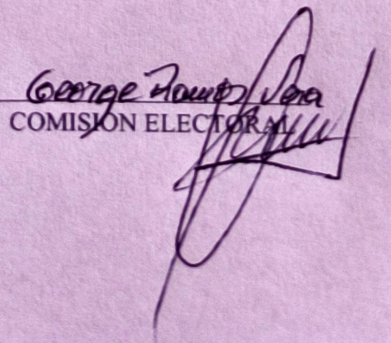 George Ramos Vera
COMISIÓN ELECTORAL